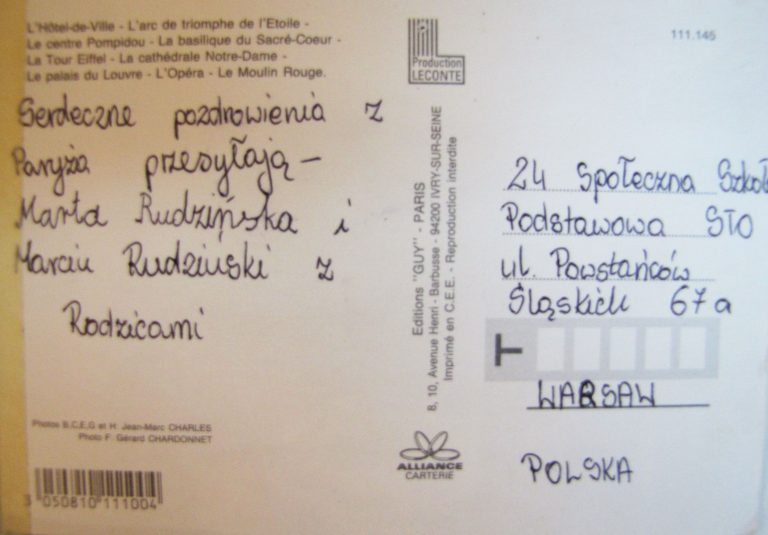 L'Hôtel-de-Ville - L'arc de triomphe de l'Etoile -
Le centre Pompidou - La basilique du Sacré-Coeur -
La Tour Eiffel - La cathédrale Notre-Dame -
Le palais du Louvre - L'Opéra - Le Moulin Rouge.
Serdeczne pozdrowienia z
Paryża przesyłają -
Marta Rudzińska i
Marcin Rudziński z
Rodzicami
Photos B,C,E,G et H: Jean-Marc CHARLES
Photo F: Gérard CHARDONNET
3 050810 111004
Production
LECONTE
Editions "GUY" - PARIS
8, 10, Avenue Henri - Barbusse - 94200 IVRY-SUR-SEINE
Imprimé en C.E.E. - Reproduction interdite
ALLIANCE
CARTERIE
111.145
24 Społeczna Szkoł
Podstawowa STO
ul. Powstańców
Śląskich 67a
WARSAW
POLSKA